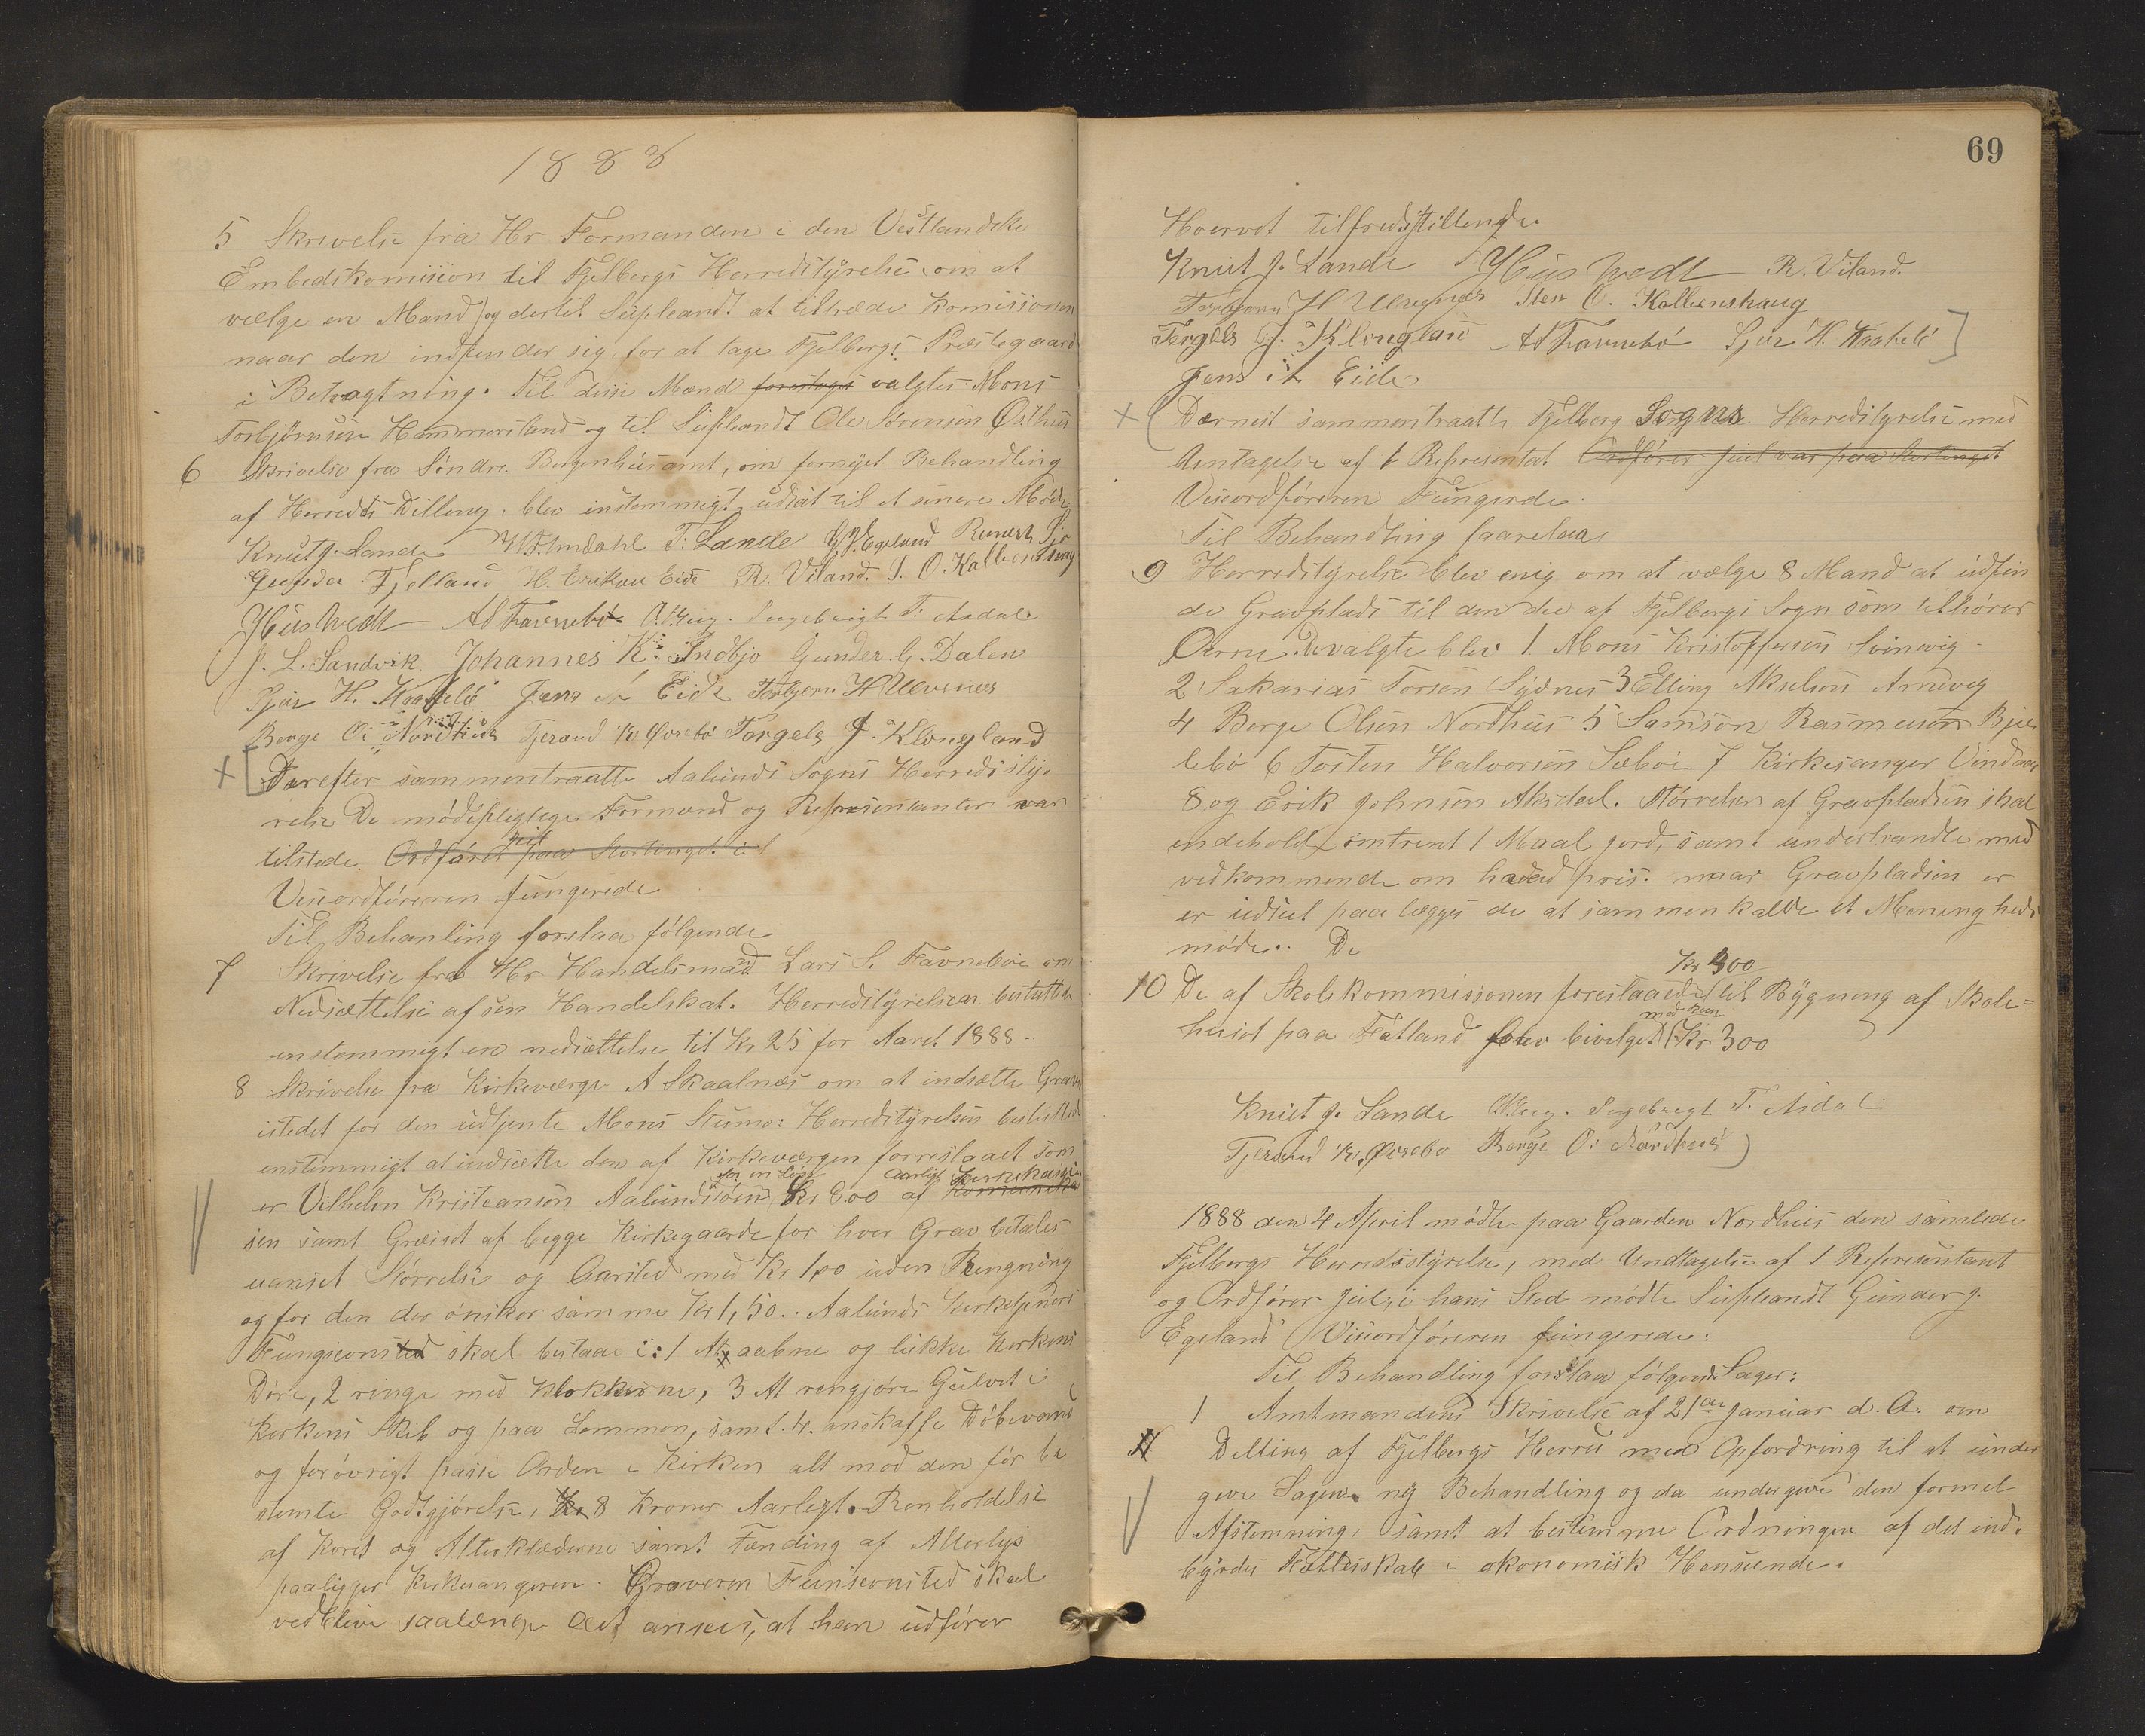 1888
5 Skrivelse fra Hr Formanden i den Vestlandske
Embedskomision til Fjelbergs Herredstyrelse om at
vælge en Mand og dertil Supleandt at tiltræde Komissionen
naar den indfinder sig for at tage Fjelbergs Præstegaard
i Betragtning. Til disse Mænd foresloges valgtes Mons
Torbjörnsen Hammersland og til Supleandt Ole Sörensen Østhus
6 Skrivelse fra Söndre Bergenhusamt, om fornyet Behandling
af Herredets Dilling. blev enstemmigt udsat til et senere Möde
Knut J. Lande T. Lande G. J. Egeland
Gunder Fjelland H. Erikson Eide R. Viland. S. O. Kallevashaug
Huswedt A S Favnebö Ingebrigt T. Asdal
J. L. Sandvik Johannes K. Indbjo Gunder G. Dalen
Sjur H. Kaafelö Jens Eide Torbjørn H Ulvenes
Borge O. Nordhus Tjerand K Øvrebö Torgels J. Klongland
Derefter sammentraatte Aalunds Sogns Herredssty-
relse De mödepligtege Formænd og Represemtanter var
tilstede. Ordföret Juel paa Stortinget
Viseordföreren fungerede
Til Behanling forelaa fölgende
7 Skrivelse fra Hr Handelsmand Lars S. Favneböe om
Nedsættelse af sin Handelskat. Herredstyrelsen besluttede
enstemmigt en nedsættelse til Kr 25 for Aaret 1888.
8 Skrivelse fra Kirkeværge A Skaalnæs om at indsætte Graver
istedet for den udtjente Mons Stumo: Herredstyrelsen besluttede
enstemmigt at indsætte den af Kirkeværgen forreslaaet som
for en Løn aarligt Kirkekassen
er Vilhelm Kristeansön Aalundsöen Kr 8.00 af Komunekas
sen samt Græsset af begge Kirkegaarde for hver Grav betales
uanset Störrelse og Aarsted med Kr 1,00 uden Rengning
og for den der önsker samme Kr 1,50. Aalunds Kirketjeners
Fungsionsted skal bestaa i: 1 At aabne og lukke Kirkens
Döre, 2 ringe med Klokkerne, 3 At rengjöre Gulvet i
Kirkens Skib og paa Lemmen, samt. 4. anskaffe Döbevand
og forövrigt passe Orden i Kirken alt mod den för be
stemte Godtgjörelse, Kr 8 Kroner Aarlegt. Renholdelse
af Koret og Alterklæderne samt Tænding af Alterlys
paaligger Kirkesangeren. Graveren Funsionsted skal
vedblive saalænge det ansees, at han udförer
69
Hvervet tilfredsstillende
Knut J. Lande Huswedt R. Viland
Torbjørn H Ulvenes Sten O. Kallevashaug
Torgels J. Klongland A S Favnebö Sjur H. Kaafelö
Jens Eide
Dernest sammentraatte Fjelberg Sogns Herredstyrelse med
Untagelse af 1 Represintat Ordförer Juel var paa Stortinget
Viseordföreren Fungerde.
Til Behandling faarelaa
9 Herredstyrelse blev enig om at vælge 8 Mand at udfin
de Gravplads til den del af Fjelbergs Sogn som tilhörer
Öerne. Devalgte blev 1 Mons Kristoffersen Svinevig
2 Sakarias Torsen Sydnes 3 Elling Akselsen Arnevig
4 Berge Olsen Nordhus 5 Samson Rasmuson Bjel
lebö 6 Tosten Halvorsen Sæböe 7 Kirkesanger Vindenes
8 og Erik Johnsen Aksdal. Störrelsen af Gravpladsen skal
indehold omtrent 1 Maal jord, samt underhandle med
vedkommende om hadad pris. naar Gravpladsen er
er udset paa lægges de at sammen kalde et Mening heds
möde. De
Kr 400
10 De af Skolekommissionen foreslaaede til Bygning af Skole=
med kun
huset paa Fatland blev bivelget Kr 300
Knut J. Lande Ingebregt T. Asdal
Tjerand K. Øvrebo Borge O. Nordhus
1888 den 4 April mödte paa Gaarden Nordhus den samlede
Fjelbergs Herredsstyrelse, med Undtagelse af 1 Represintant
og Ordförer Juel, i hans Sted mödte Supleandt Gunder J.
Egeland Viseordföreren fungerede:
Til Behandling forelaa fölgende Sager:
1 Amtmandens Skrivelse af 21de Januar d. A. om
Delling af Fjelbergs Herred med Opfordring til at under
give Sagen ny Behandling og da undergive den formel
Afstemning, samt at bestemme Ordningen af det ind.
byrdes Fællesskab i økonomisk Henseende.